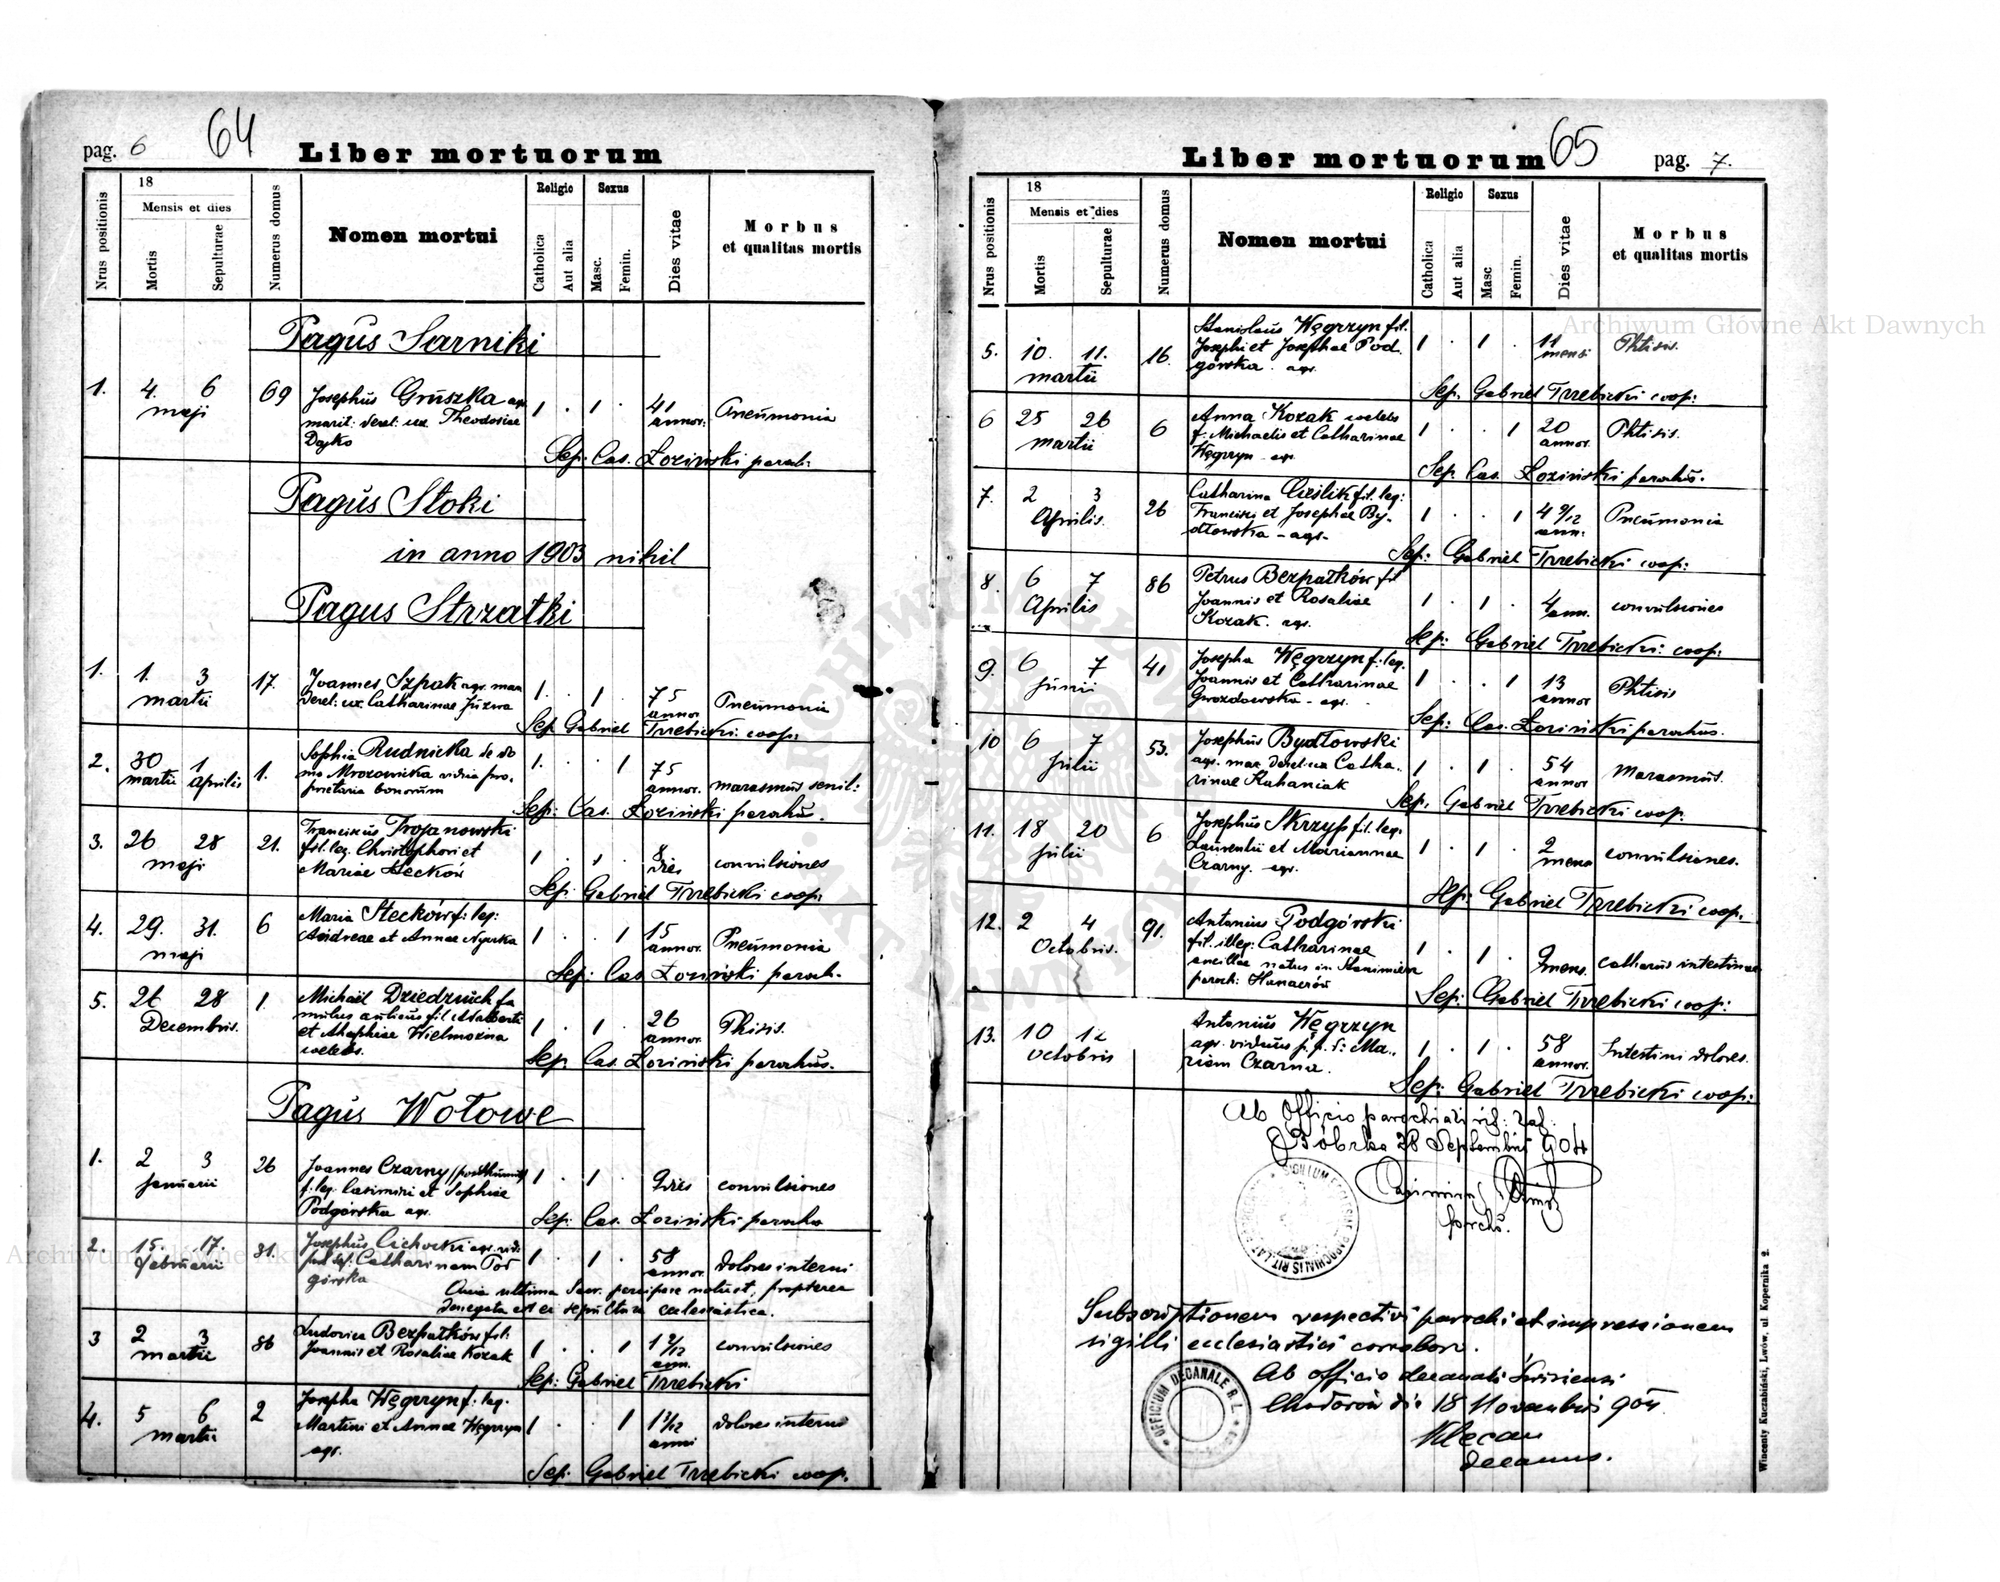 pag. 6
64
Liber mortuorum
Nrus positionis
18
Mensis et dies
Mortis
Sepulturae
Numerus domus
Nomen mortui
Religio
Catholica
Aut alia
Sexus
Masc.
Femin.
Dies vitae
Morbus
et qualitas mortis
Pagus Sarniki
1. 4. 6 69 Josephus Gruszka agr.
maji marit: derel: ux Theodosiae 1 . 1 . 41 annor: Pneumonia
Dajko
Sep: Cas. Łoziński paroch:
Pagus Stoki
in anno 1903 nihil
Pagus Strzałki
1. 1. 3 17. Joannes Szpak agr. mar.
martii derel: ux Catharinae Juzwa 1. . 1 . 75 annor Pneumonia
Sep Gabriel Trzebicki: coop:
2. 30 1 1. Sophia Rudnicka de do
martii aprilis mo Mrozowicka vidua pro, 1. . . 1 75
prietaria bonorum annor. marasmus senil:
Sep: Cas. Łoziński parochus.
3. 26 28 21. Franciscus Trojanowski
maji fil. leg. Christophori et 1 . 1 . 8 dies convulsiones
Mariae Steckow
Sep: Gabriel Trzebicki coop:
4. 29. 31. 6 Maria Steckow f: leg:
maji Andreae et Annae 1 . . 1 15 annor. Pneumonia
Sep: Cas Łoziński paroch.
5. 26 28 1. Michaël Dziedzuch fa
Decembris. mulus aulicus fil Adalberti
et Agaphiae Wielmożna 1 . 1 . 26 annor. Phisis.
coelebs.
Sep. Cas. Łoziński parochus.
Pagus Wołowe
1. 2 3 26 Joannes Czarny /posthumus/
Januarii f. leg. Casimiri et Sophiae 1 . 1 . 9 dies convulsiones
Podgórska agr.
Sep: Cas. Łoziński parochus
2. 15. 17. 31. Josephus Cichocki agr. vidu
februarii post def: Catharinam Pod 1 . 1 . 58 annor. dolores interni
górska
Quia ultima Sacr. percipere noluit, propterea
denegata est ei sepultura ecclesiastica.
3 2 3 86 Ludovica Bezpałków fil:
martii Joannis et Rosaliae Kozak 1 . . 1 1 2/12 ann. convulsiones
Sep: Gabriel Trzebicki
4. 5 6 2 Josepha Węgrzyn f: leg.
martii Martini et Annae Węgrzyn 1 . . 1 1 1/12 anni dolores interni
agr.
Sep: Gabriel Trzebicki coop.
Liber mortuorum
65
pag. 7.
Nrus positionis
18
Mensis et dies
Mortis
Sepulturae
Numerus domus
Nomen mortui
Religio
Catholica
Aut alia
Sexus
Masc
Femin.
Dies vitae
Morbus
et qualitas mortis
5. 10. 11. 16. Stanislaus Węgrzyn fil.
martii Josephi et Josephae Pod 1 . 1 . 11 mensi Phtisis.
górska. agr.
Sep. Gabriel Trzebicki coop:
6 25 26 6 Anna Kozak coelebs
martii f. Michaelis et Catharinae 1 . . 1 20 annor. Phtisis.
Węgrzyn - agr.
Sep. Cas. Łoziński parochus.
7. 2 3 26 Catharina Cieślik fil. leg:
Aprilis. Francisci et Josephae By- 1 . . 1 4 9/12 ann. Pneumonia
dłowska - agr.
Sep: Gabriel Trzebicki coop:
8. 6 7 86 Petrus Bezpałków fil
Aprilis Joannis et Rosaliae 1 . 1 . 4 ann. convulsiones
Kozak. agr.
Sep: Gabriel Trzebicki: coop:
9. 6 7 41 Josepha Węgrzyn f: leg.
Junii Joannis et Catharinae 1 . . 1 13 annor Phtisis
Gwozdowska - agr.
Sep: Cas. Łoziński parochus.
10 6 7 53. Josephus Bydłowski
Julii agr. mar. derel: ux Catha. 1 . 1 . 54 annor Marasmus.
rinae Kahaniak
Sep. Gabriel Trzebicki coop.
11. 18 20 6 Josephus Skrzyp fil. leg.
Julii Laurentii et Mariannae 1 . 1 . 2 mens convulsiones.
Czarny. agr.
Sep: Gabriel Trzebicki coop.
12. 2 4 91. Antonius Podgórski
Octobris. fil. illeg: Catharinae 1 . 1 . 9 mens. catharus intestinae
ancillae natus in Kazimierz
paroch: Hanaczów
Sep: Gabriel Trzebicki coop:
13. 10 12 Antonius Węgrzyn
Octobris agr. viduus p. f. d: Ma.. 1 . 1 . 58 annor. Intestini dolores.
riam Czarna.
Sep: Gabriel Trzebicki coop:
Ab Officio parochiali rit: lat.
Bóbrka 28 Septembris 904
parochus.
Subscriptionem respectivi parochi et impressionem
sigilli ecclesiastici corrobor.
OFFICIUM DECANALE R. L.
Ab officio decanali Swirzensi
Chodorów die 18 Novembris 904
Klecan
decanus.
Wincenty Kuczabiński, Lwów, ul Kopernika 2.
Archiwum Główne Akt Dawnych
Archiwum Główne Akt Dawnych